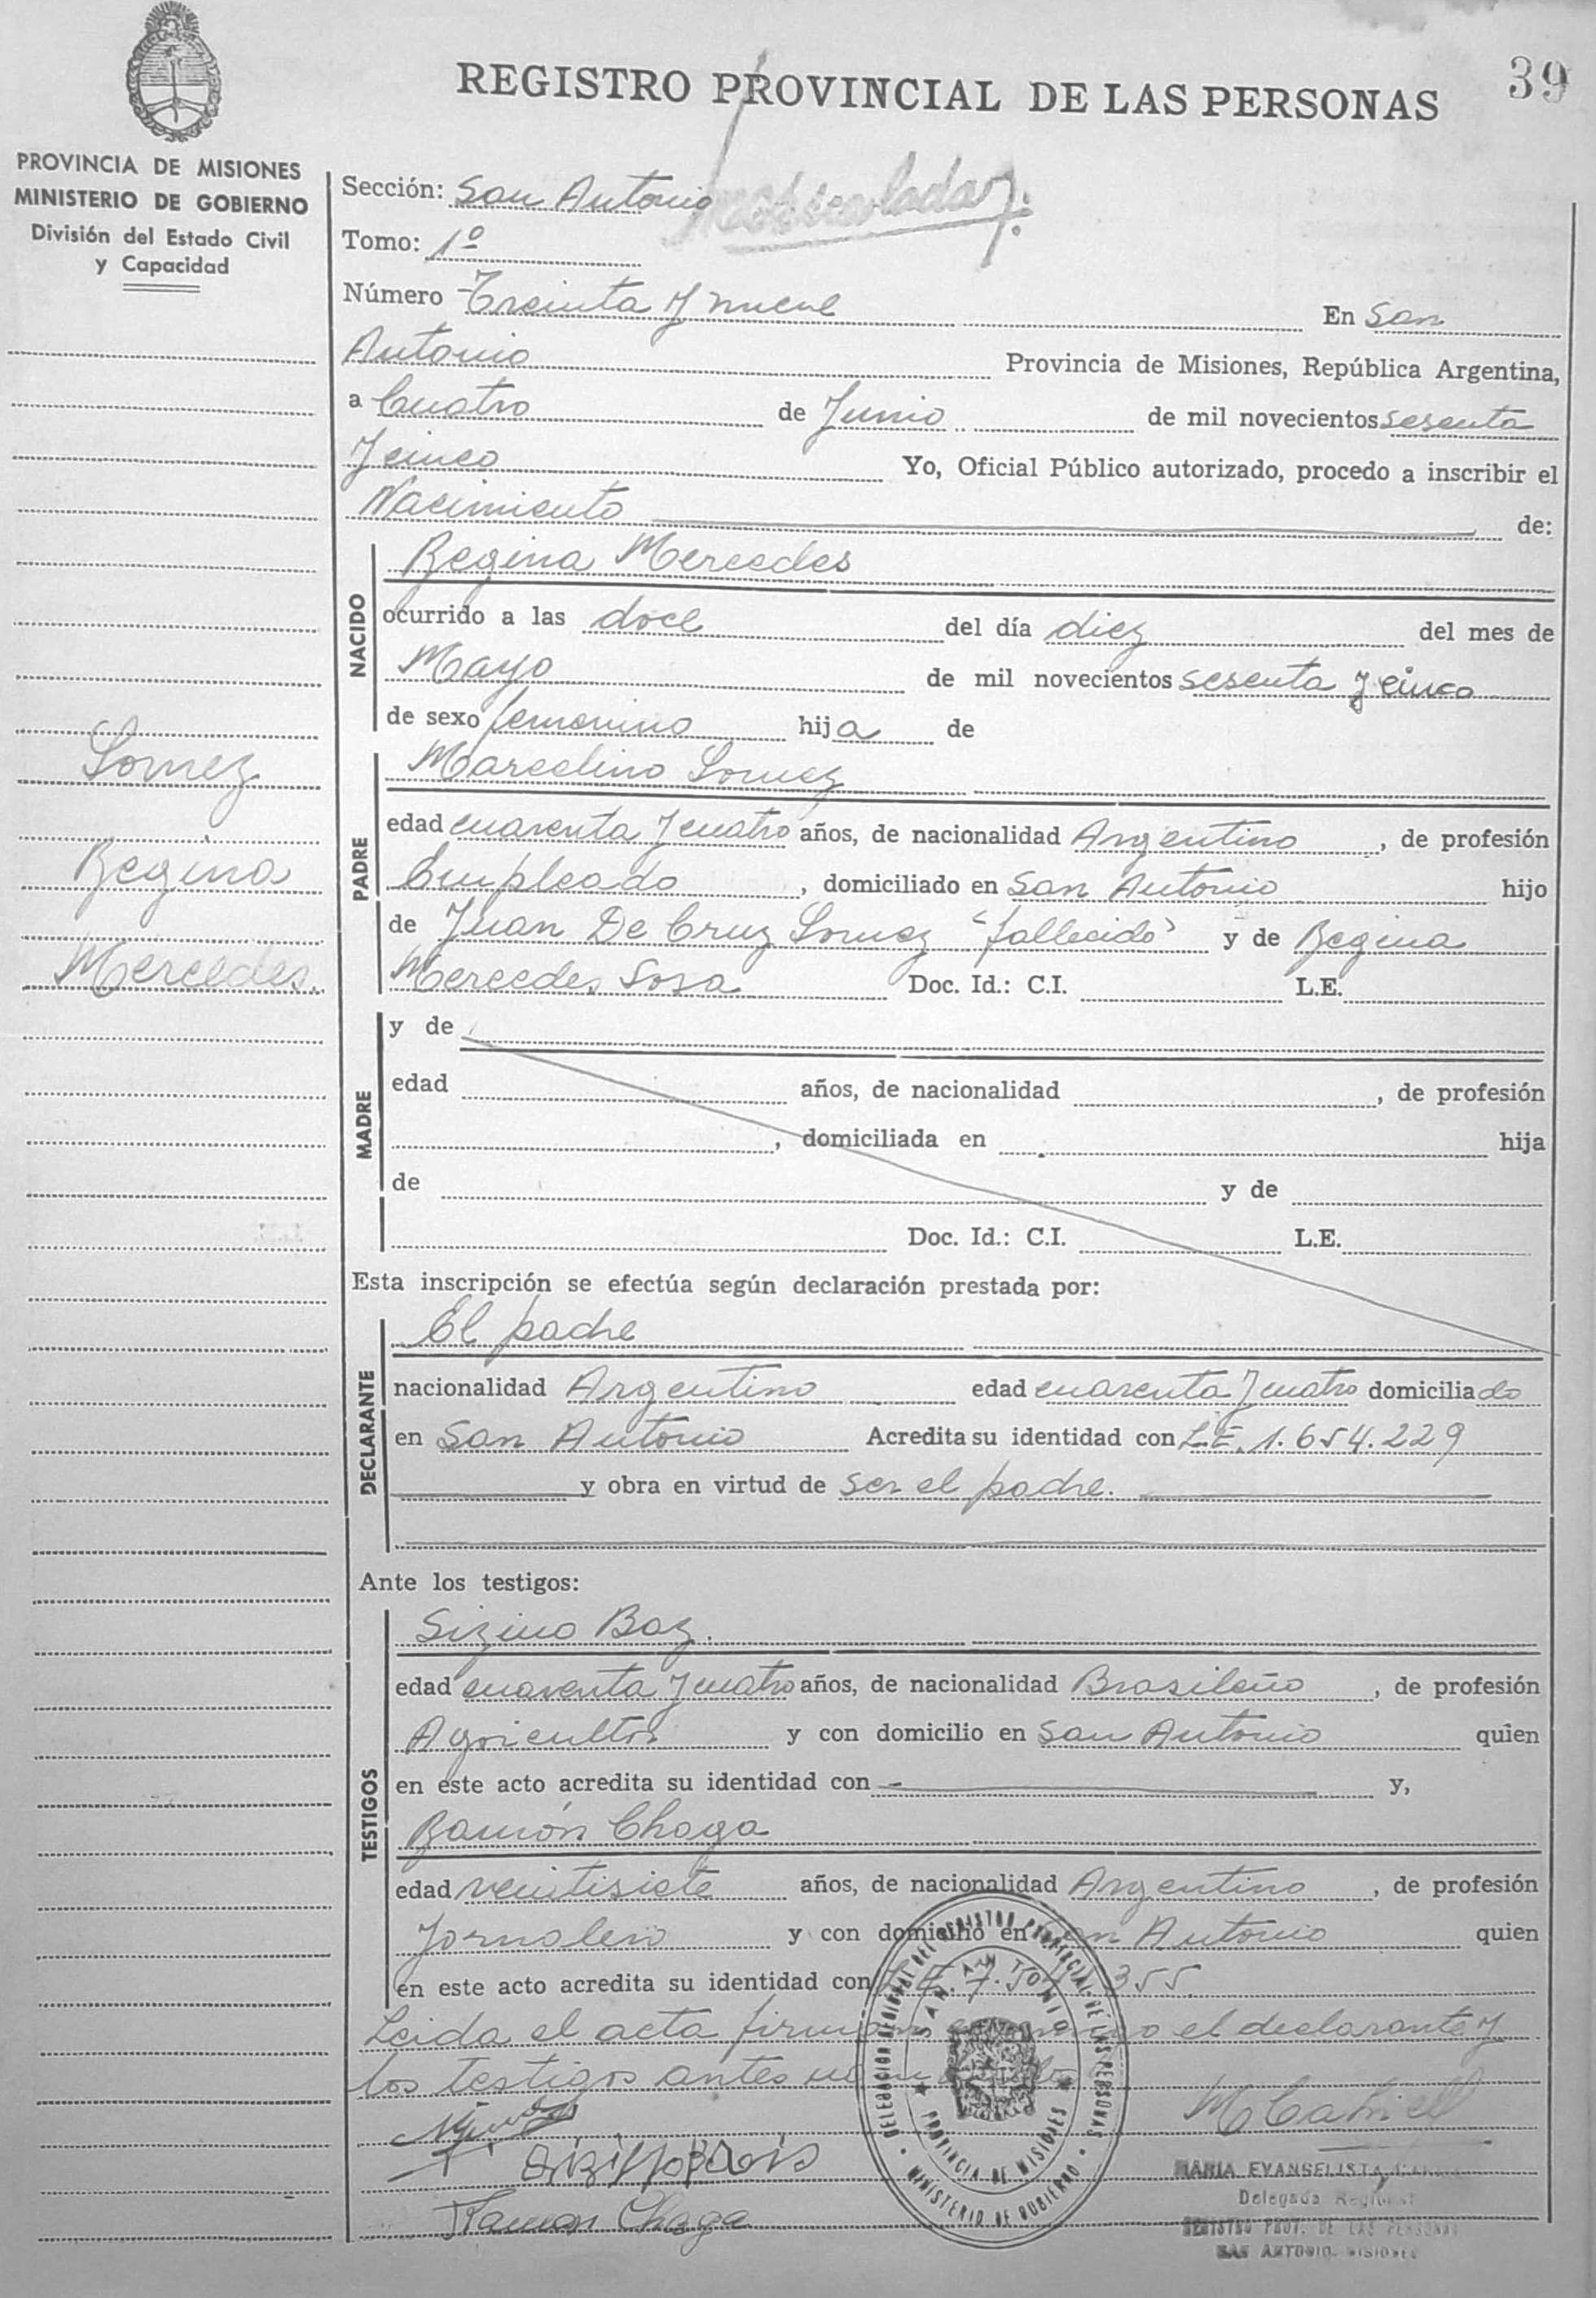 39
REGISTRO PROVINCIAL DE LAS PERSONAS
PROVINCIA DE MISIONES
MINISTERIO DE GOBIERNO
División del Estado Civil
y Capacidad
Sección: San Antonio
Tomo: 1º
Número Treinta y nueve En San
Antonio Provincia de Misiones, República Argentina,
a Cuatro de Junio de mil novecientos sesenta
y cinco Yo, Oficial Público autorizado, procedo a inscribir el
Nacimiento de:
NACIDO
Regina Mercedes
ocurrido a las doce del día diez del mes de
Mayo de mil novecientos sesenta y cinco
de sexo femenino hija de
Gomez
Regina
Mercedes.
PADRE
Marcelino Gomez
edad cuarenta y cuatro años, de nacionalidad Argentino, de profesión
Empleado, domiciliado en San Antonio hijo
de Juan De Cruz Gomez "fallecido" y de Regina
Mercedes Sosa Doc. Id.: C.I. L.E.
MADRE
y de
edad años, de nacionalidad , de profesión
, domiciliada en hija
de y de
Doc. Id.: C.I. L.E.
Esta inscripción se efectúa según declaración prestada por:
DECLARANTE
El padre
nacionalidad Argentino edad cuarenta y cuatro domiciliado
en San Antonio Acredita su identidad con L.E. 1.654.229
y obra en virtud de ser el padre.
Ante los testigos:
TESTIGOS
Sizino Baz.
edad cuarenta y cuatro años, de nacionalidad Brasileño, de profesión
Agricultor y con domicilio en San Antonio quien
en este acto acredita su identidad con y,
Ramón Chaga
edad veintisiete años, de nacionalidad Argentino, de profesión
Jornalero y con domicilio en San Antonio quien
en este acto acredita su identidad con L.E. 7.50 355.
Leida el acta firman el declarante y
los testigos antes
DELEGACION REGIONAL DEL REGISTRO PROVINCIAL DE LAS PERSONAS
SAN ANTONIO
PROVINCIA DE MISIONES
MINISTERIO DE GOBIERNO
Ramon Chaga
MARIA EVANGELISTA
Delegada Regional
REGISTRO PROV. DE LAS PERSONAS
SAN ANTONIO - MISIONES